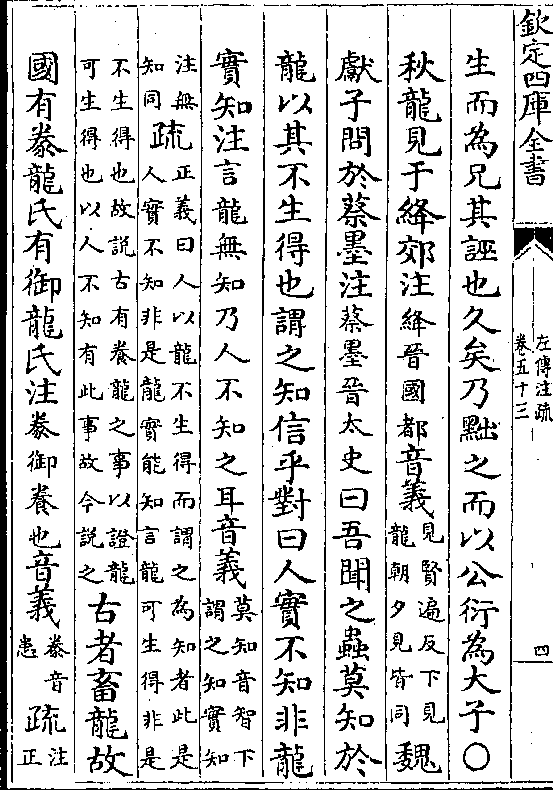 欽定四庫全書
左傳注疏
卷五十三
四
生而為兄其誣也久矣乃黜之而以公衍為大子○
秋龍見于絳郊注絳晉國都音義見賢遍反下見龍朝夕見皆同魏
獻子問於蔡墨注蔡墨晉太史曰吾聞之蟲莫知於
龍以其不生得也謂之知信乎對曰人實不知非龍
實知注言龍無知乃人不知之耳音義莫知音智下謂之知實知
注無知同疏正義曰人以龍不生得而謂之為知者此是人實不知非是龍實能知言龍可生得非是
不生得也故説古有養龍之事以證龍可生得也以人不知有此事故今説之古者畜龍故
國有豢龍氏有御龍氏注豢御養也音義豢音患疏注正